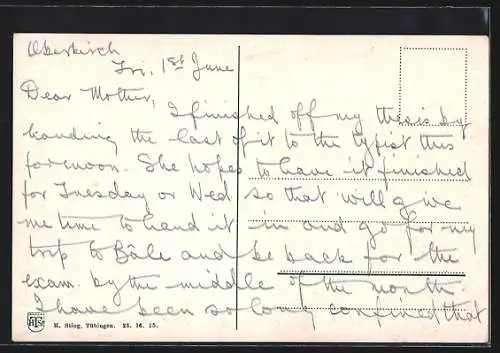 Oberkirch
Fri. 1st June
Dear Mother,
I finished off my thesis by
handing the last of it to the typist this
forenoon. She hopes to have it finished
for Tuesday or Wed so that will give
me time to hand it in and go for my
trip to Bâle and be back for the
exam. by the middle of the month.
I have been so long confined that
H. Sting, Tübingen. 25. 16. 15.